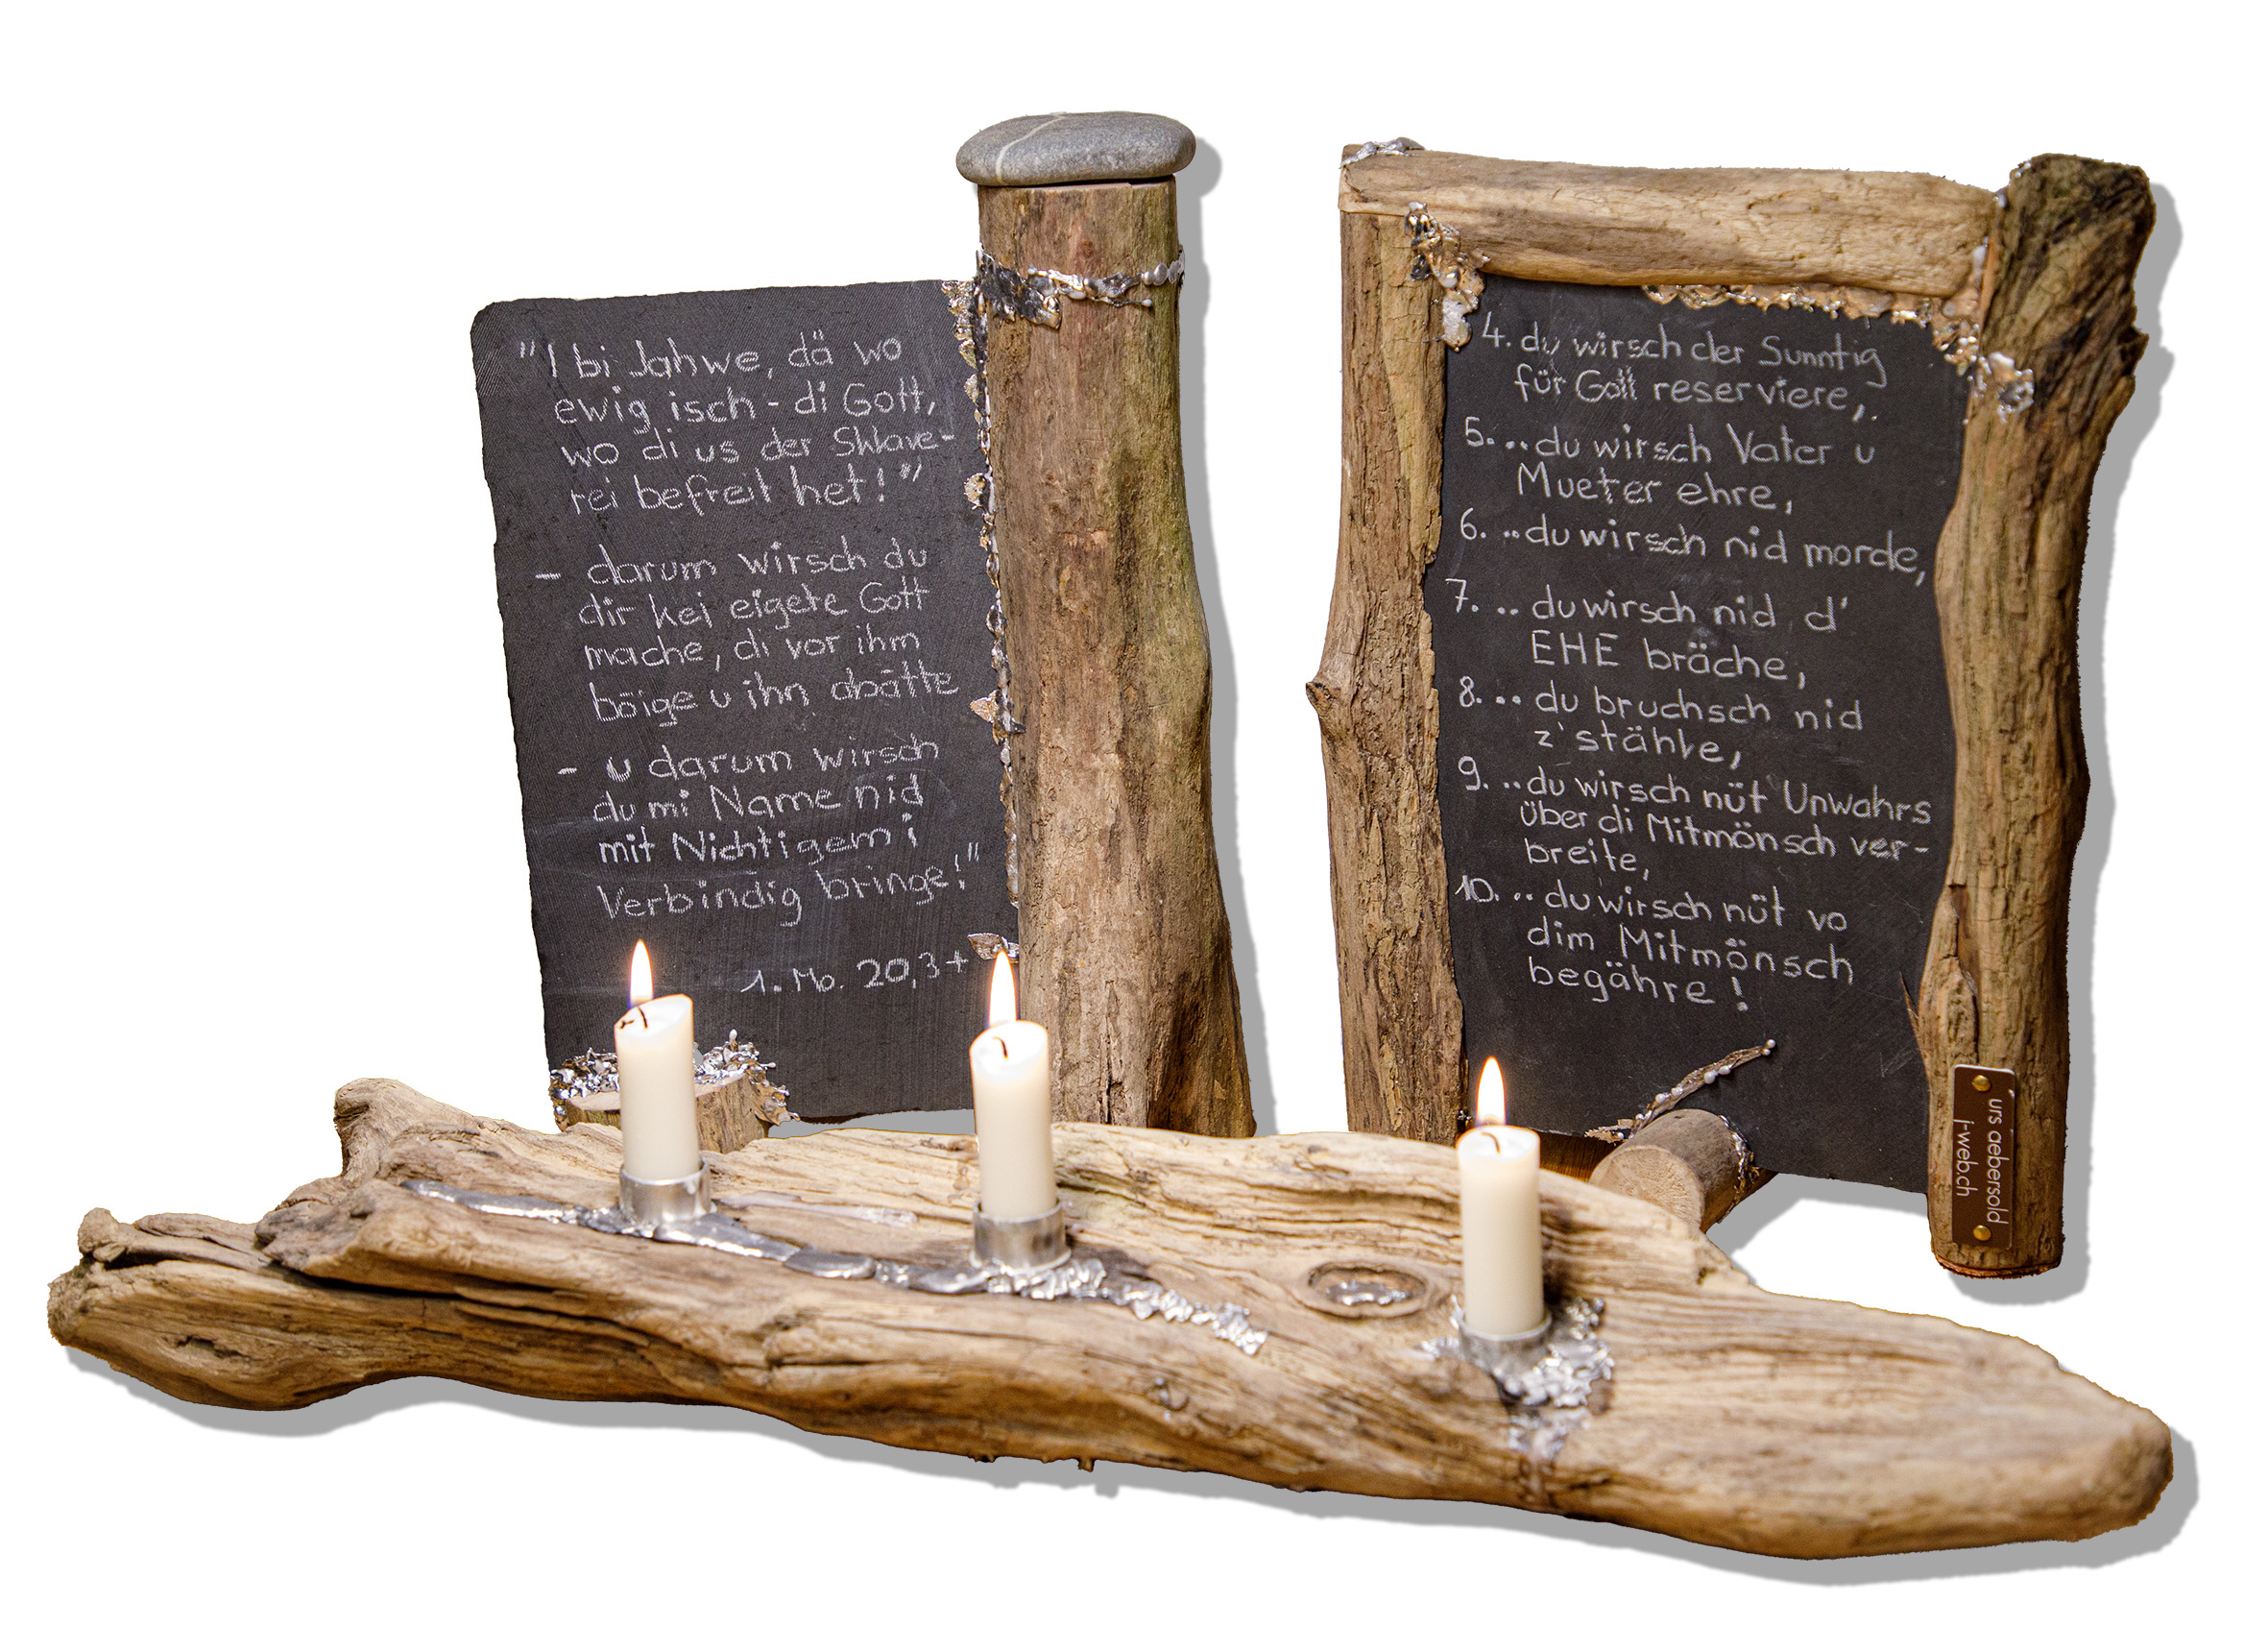 "I bi Jahwe, dä wo
ewig isch - di Gott,
wo di us der Sklave-
rei befreit het!"
- darum wirsch du
dir kei eigete Gott
mache, di vor ihm
böige u ihn abätte
- u darum wirsch
du mi Name nid
mit Nichtigem i
Verbindig bringe!"
1. Mo. 20,3+
4. du wirsch der Sunntig
für Gott reserviere,
5. .. du wirsch Vater u
Mueter ehre,
6. .. du wirsch nid morde,
7. .. du wirsch nid d'
EHE bräche,
8. .. du bruchsch nid
z'stähle,
9. .. du wirsch nüt Unwahrs
über di Mitmönsch ver-
breite,
10. .. du wirsch nüt vo
dim Mitmönsch
begähre!
urs aebersold
j-web.ch